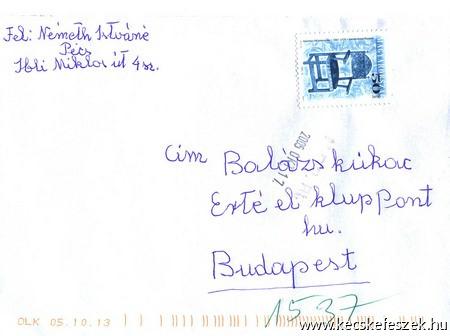 Fel: Németh Istváné
Pécs
Ibli Miklos út 4 sz.
50 Ft
2005 07. 17
Cím Balázskukac
Erté el kluppont
hu.
Budapest
1537
OLK 05.10.13
www.kecskefeszek.hu